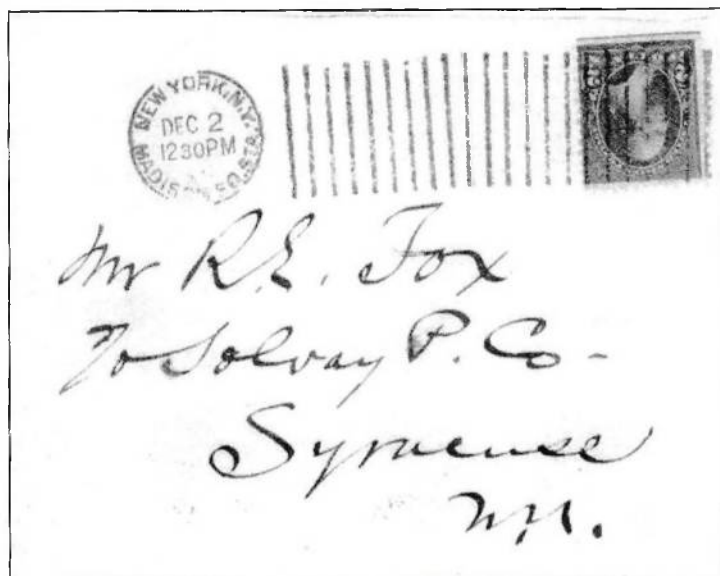 NEW YORK, N.Y.
DEC 2
12 30 PM
MADISON SQ. STA.
Mr R. E. Fox
℅ Solvay P. Co -
Syracuse
N.Y.